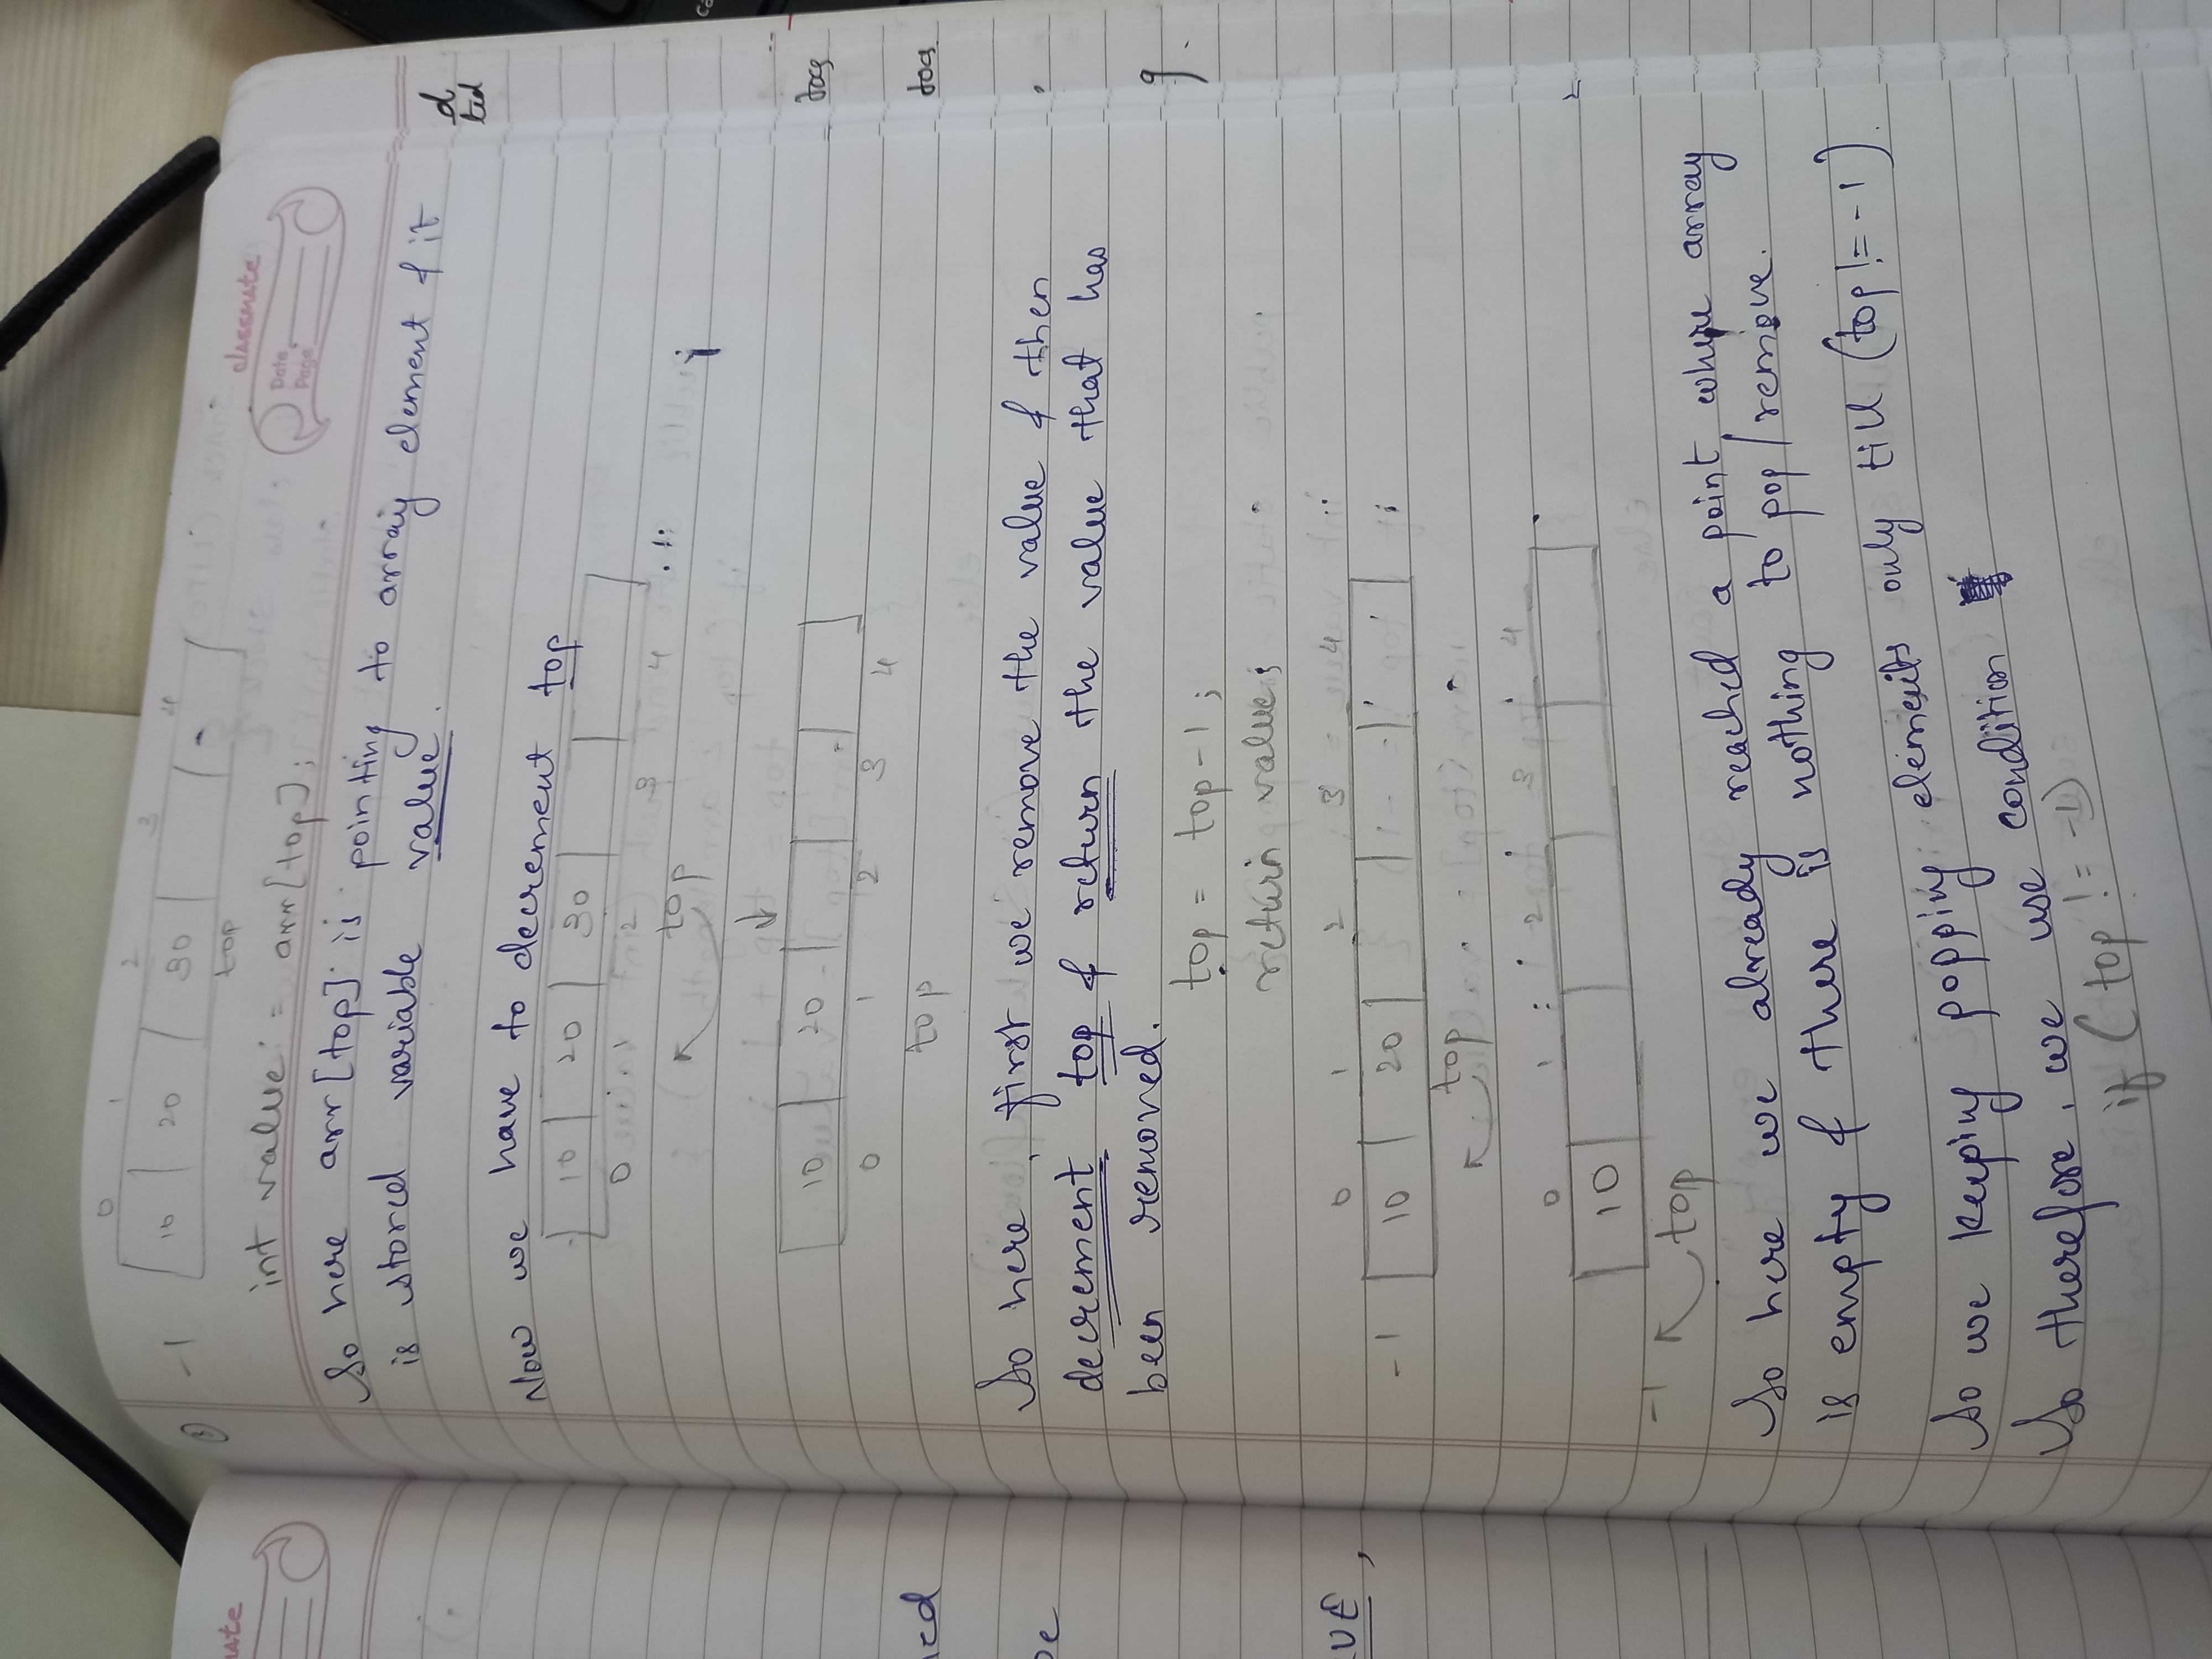 0 1 2 3 4
-1 10 20 30
top
int value = arr[top];
classmate
Date
Page
So here arr[top] is pointing to array element & it
is stored variable value.
Now we have to decrement top
10 20 30
0 1 2 3 4
top
10 20
0 1 2 3 4
top
So here, first we remove the value & then
decrement top & return the value that has
been removed.
top = top-1;
return value;
0 1 2 3 4
-1 10 20
top
0 1 2 3 4
10
-1 top
So here we already reached a point where array
is empty & there is nothing to pop/remove.
So we keeping popping elements only till (top != -1).
So therefore, we use condition
if (top != -1)